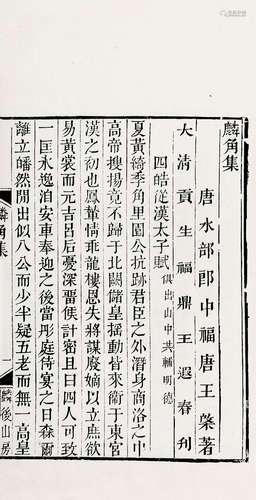 麟角集
唐水部郎中福唐王棨著
大清貢生福鼎王遐春刋
四皓從漢太子賦 俱出山中共輔明德
夏黃綺季角里園公抗跡君臣之外潛身商洛之中
高帝搜揚竟不歸于北闕儲皇搖動皆來衞于東宮
漢之初也鳳摯情乖龍樓恩失將謀廢嫡以立庶欲
易黃裳而元吉呂后憂深畱侯計密且曰四人可致
一匡永逸洎安車奉迎之後當彤庭待宴之日森爾
離立皤然間出似八公而少半疑五老而無一高皇
麟角集
一
麟後山房